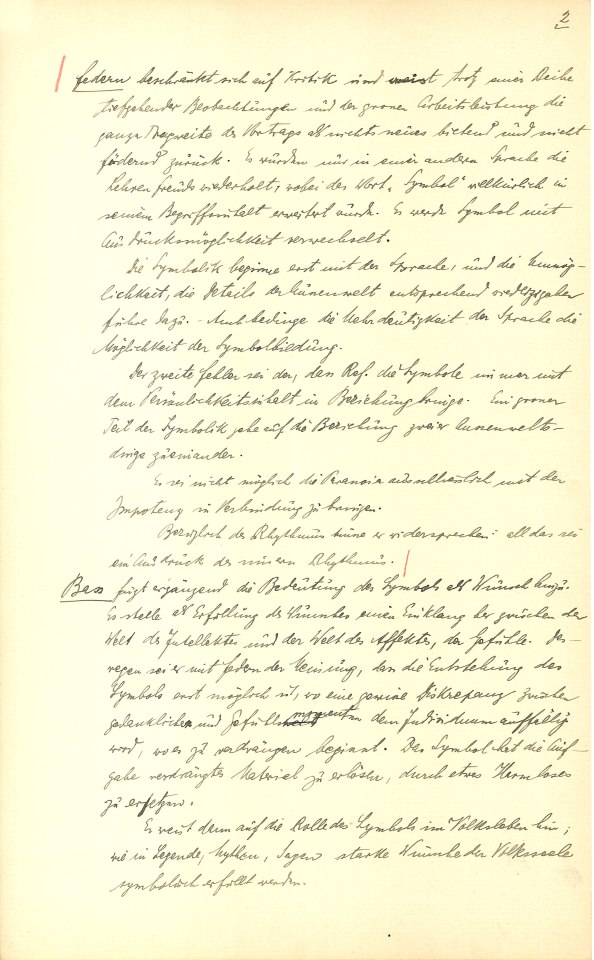 2
Federn beschränkt sich auf Kritik und weist trotz einer Reihe
tiefgehender Beobachtungen und der grossen Arbeitsleistung die
ganze Tragweite des Vortrags als nichts neues bietend und nicht
fördernd zurück. Es würden nur in einer andern Sprache die
Lehren Freuds wiederholt, wobei das Wort „Symbol" willkürlich in
seinem Begriffsinhalt erweitert würde. Es werde Symbol mit
Ausdrucksmöglichkeit verwechselt.
Die Symbolik beginne erst mit der Sprache, und die Unmög-
lichkeit, die Details der Aussenwelt entsprechend wiederzugeben
führe dazu. - Auch bedinge die Mehrdeutigkeit der Sprache die
Möglichkeit der Symbolbildung.
Der zweite Fehler sei der, dass Ref. die Symbole immer mit
dem Persönlichkeitsinhalt in Beziehung bringe. Ein grosser
Teil der Symbolik gehe auf die Beziehung zweier Aussenwelts-
dinge zueinander.
Es sei nicht möglich die Paranoia ausschliesslich mit der
Impotenz in Verbindung zu bringen.
Bezüglich des Rhythmus müsse er widersprechen: all das sei
ein Ausdruck des innern Rhythmus.
Bass fügt ergänzend die Bedeutung des Symbols als Wunsch hinzu.
Es stelle als Erfüllung des Wunsches einen Einklang her zwischen der
Welt des Intellektes und der Welt des Affektes, der Gefühle. Des-
wegen sei er mit Federn der Meinung, dass die Entstehung des
Symbols erst möglich ist, wo eine gewisse Diskrepanz zwischen
gedanklichen und Gefühlsmomenten dem Individuum auffällig
wird, wo es zu verdrängen beginnt. Das Symbol hat die Auf-
gabe verdrängtes Material zu erlösen, durch etwas Harmloses
zu ersetzen.
Er weist dann auf die Rolle des Symbols im Volksleben hin;
wie in Legende, Mythen, Sagen starke Wünsche der Volksseele
symbolisch erfüllt werden.